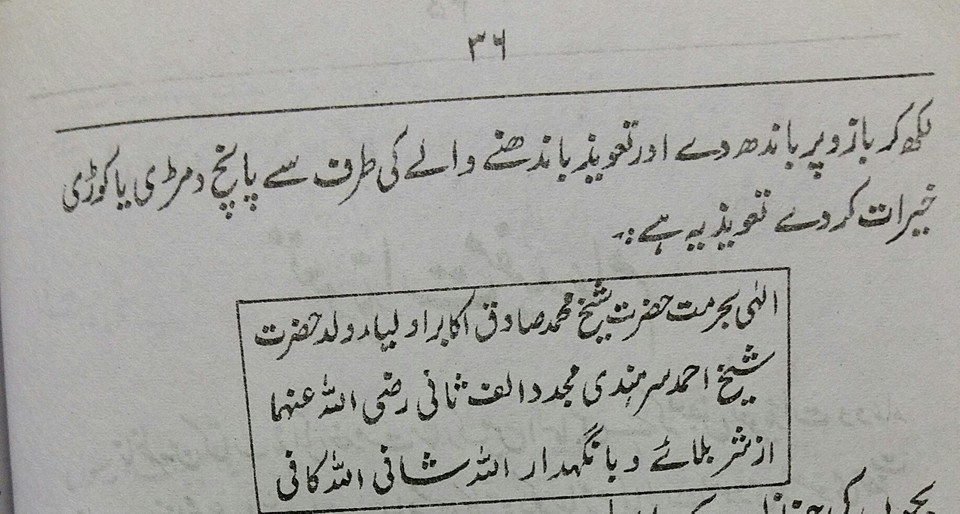 ۳۶
لکھ کر بازو پر باندھ دے اور تعویذ باندھنے والے کی طرف سے پانچ دمڑی یا کوڑی
خیرات کر دے تعویذ یہ ہے :۔
الٰہی بحرمت حضرت شیخ محمد صادق اکابر اولیاء ولد حضرت
شیخ احمد سرہندی مجدد الف ثانی رضی اللہ عنہما
از شر بلائے وبا نگہدار اللہ شافی اللہ کافی